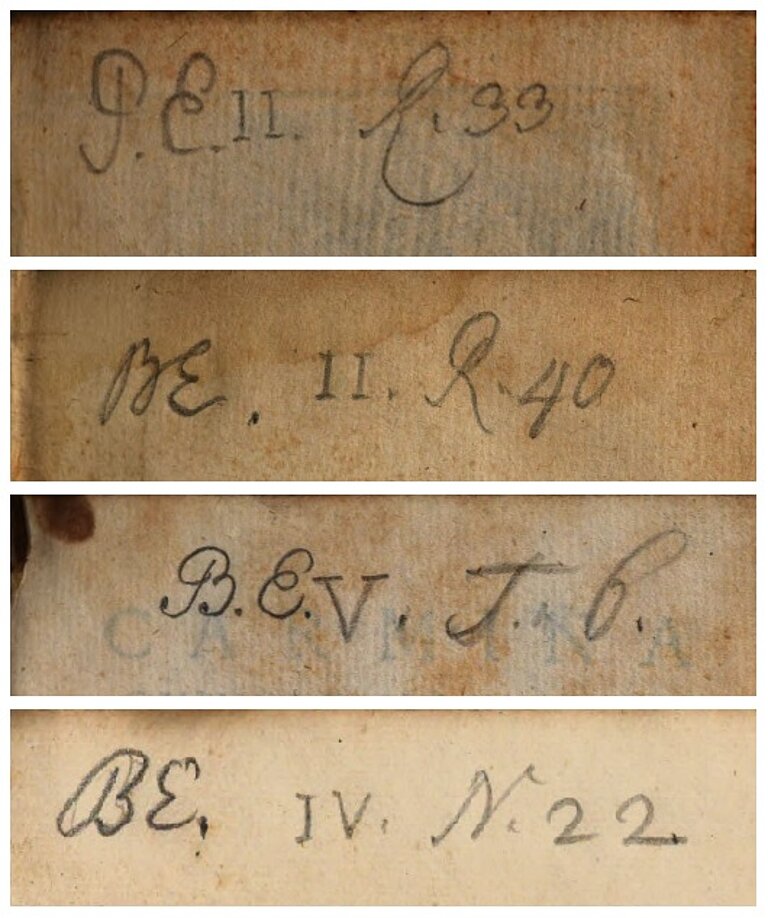 P.E.II. R.33
BE. II. R.40
B.E.V. T. 6.
CARMINA
BE. IV. N.22.